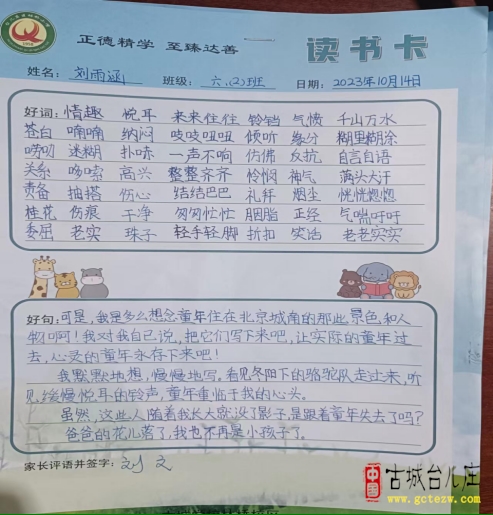 正德精学 至臻达善
读书卡
姓名：刘雨涵 班级：六、(2)班 日期：2023年10月14日
好词：情趣 悦耳 来来住住 铃铛 气愤 千山万水
苍白 喃喃 纳闷 吱吱咀咀 倾听 缘分 糊里糊涂
唠叨 迷糊 扑哧 一声不响 仿佛 反抗 自言自语
关系 哆嗦 高兴 整整齐齐 怜悯 神气 满头大汗
责备 抽搭 伤心 结结巴巴 礼拜 烟尘 恍恍惚惚
桂花 伤痕 干净 匆匆忙忙 胭脂 正经 气喘吁吁
委屈 老实 珠子 轻手轻脚 折扣 笑话 老老实实
好句：可是，我是多么想念童年住在北京城南的那些景色和人
物啊！我对我自己说，把它们写下来吧，让实际的童年过
去，心灵的童年永存下来吧！
我默默地想，慢慢地写。看见冬阳下的骆驼队走过来，听
见缓慢悦耳的铃声，童年重临于我的心头。
虽然，这些人随着我长大都没了影子，是跟着童年失去了吗？
爸爸的花儿落了，我也不再是小孩子了。
家长评语并签字：刘文
中国 古城台儿庄
www.gctezw.com